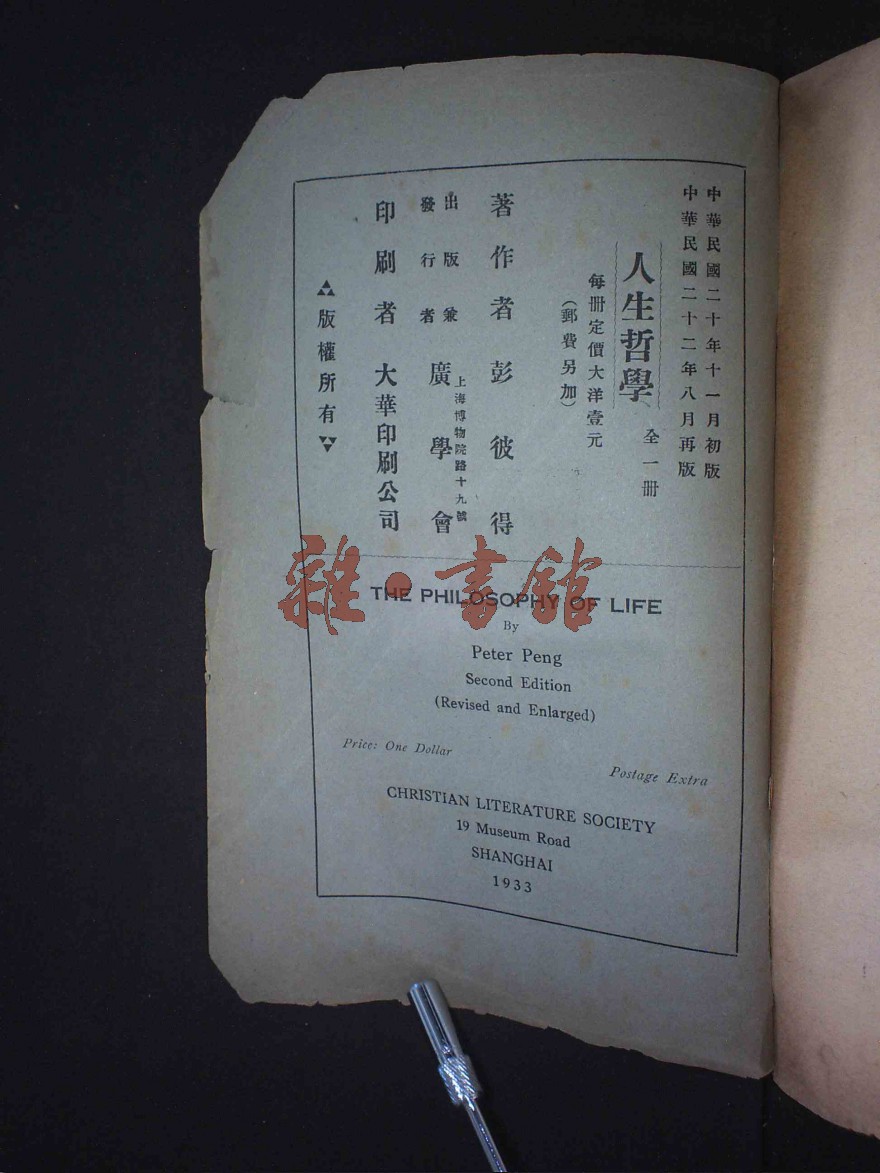 中華民國二十年十一月初版
中華民國二十二年八月再版
人生哲學 全一册
每册定價大洋壹元
（郵費另加）
著作者 彭彼得
出版兼
發行者 廣學會
上海博物院路十九號
印刷者 大華印刷公司
版權所有
雜·書館
THE PHILOSOPHY OF LIFE
By
Peter Peng
Second Edition
(Revised and Enlarged)
Price: One Dollar
Postage Extra
CHRISTIAN LITERATURE SOCIETY
19 Museum Road
SHANGHAI
1933